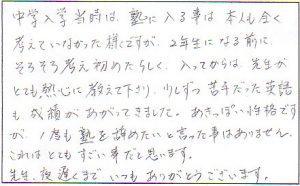 中学入学当時は、塾に入る事は本人も全く
考えていなかった様ですが、2年生になる前に
そろそろ考え初めたらしく、入ってからは、先生が
とても熱心に教えて下り、少しずつ苦手だった英語
も成積があがってきました。あきっぽい性格です
が、1度も塾を辞めたいと言った事はありません。
これはとてもすごい事だと思います。
先生、夜遅くまでいつもありがとうございます。